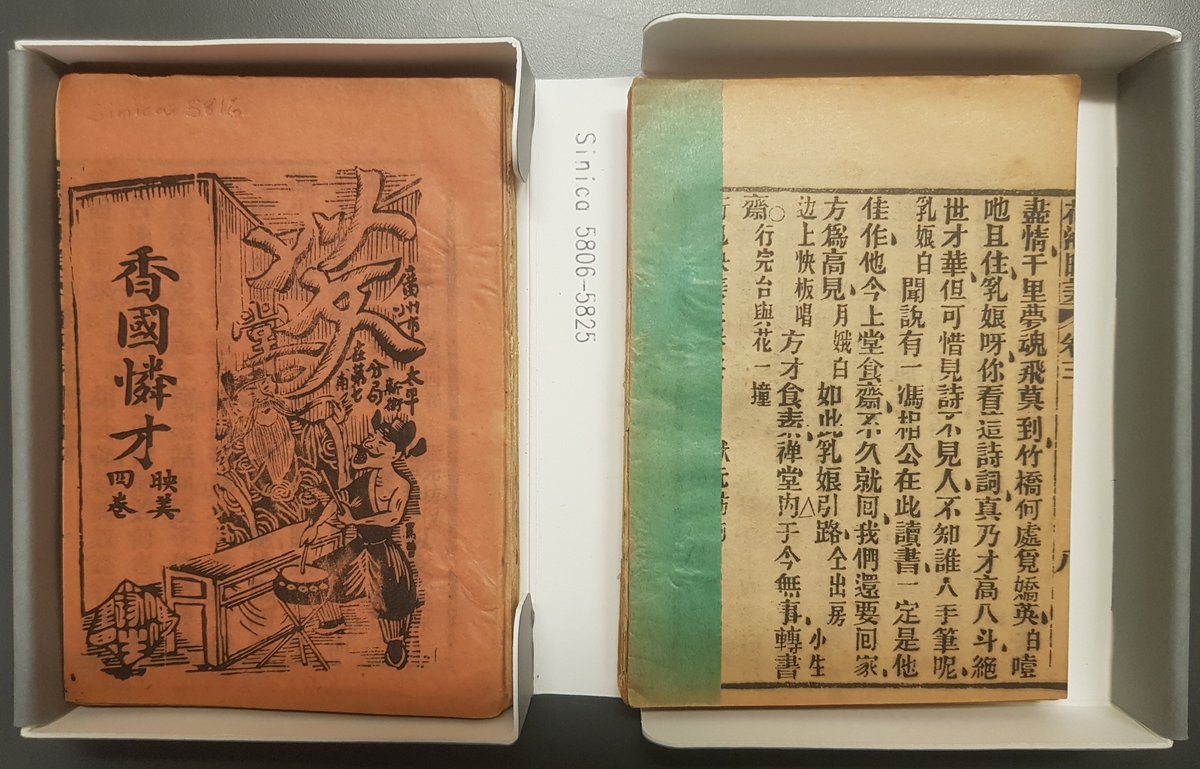 Sinica 5816
香國憐才
映美
四卷
堂
廣州市
太平新街
分局
在第七甫
Sinica 5806-5825
卷三
盡情千里夢魂飛莫到竹橋何處覓嬌英白噎
吔且住乳娘呀你看這詩詞真乃才高八斗絕
世才華但可惜見詩不見人不知誰人手筆呢
乳娘白 聞說有一馮相公在此讀書一定是他
佳作他今上堂食齋不久就囘我們還要囘家
方為高見月娥白 如此乳娘引路仝出房 小生
边上快板唱 方才食素禅堂内△于今無事轉書
齋○行完台與花一撞